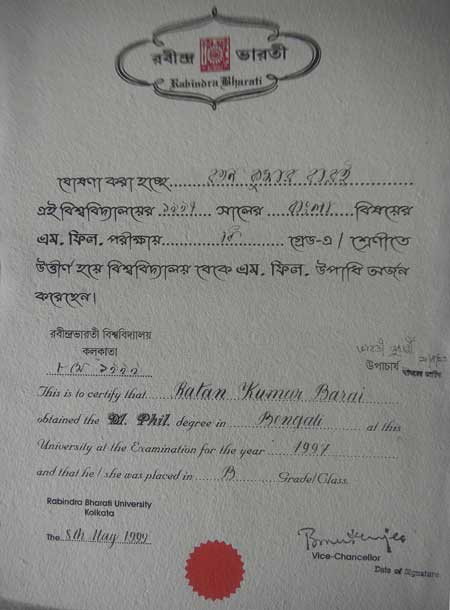 রবীন্দ্র ভারতী
Rabindra Bharati
ঘোষণা করা হচ্ছে রতন কুমার বারই
এই বিশ্ববিদ্যালয়ের ১৯৯৭ সালের বাংলা বিষয়ের
এম. ফিল. পরীক্ষায় বি গ্রেড-এ / শ্রেণীতে
উত্তীর্ণ হয়ে বিশ্ববিদ্যালয় থেকে এম. ফিল. উপাধি অর্জন
করেছেন।
রবীন্দ্রভারতী বিশ্ববিদ্যালয়
কলকাতা
৮ মে ১৯৯৯
উপাচার্য
This is to certify that Ratan Kumar Barai
obtained the M. Phil. degree in Bengali at this
University at the Examination for the year 1997
and that he / she was placed in B Grade/Class.
Rabindra Bharati University
Kolkata
The 8th May 1999
Vice-Chancellor
Date of Signature